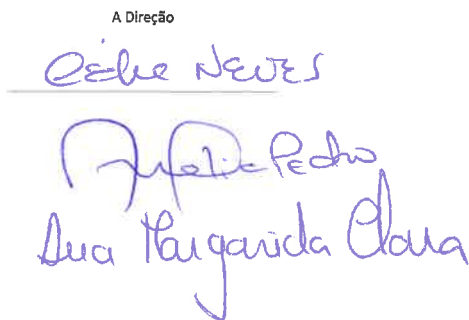 A Direção
Célia Neves
Amélia Pedro
Ana Margarida Clara